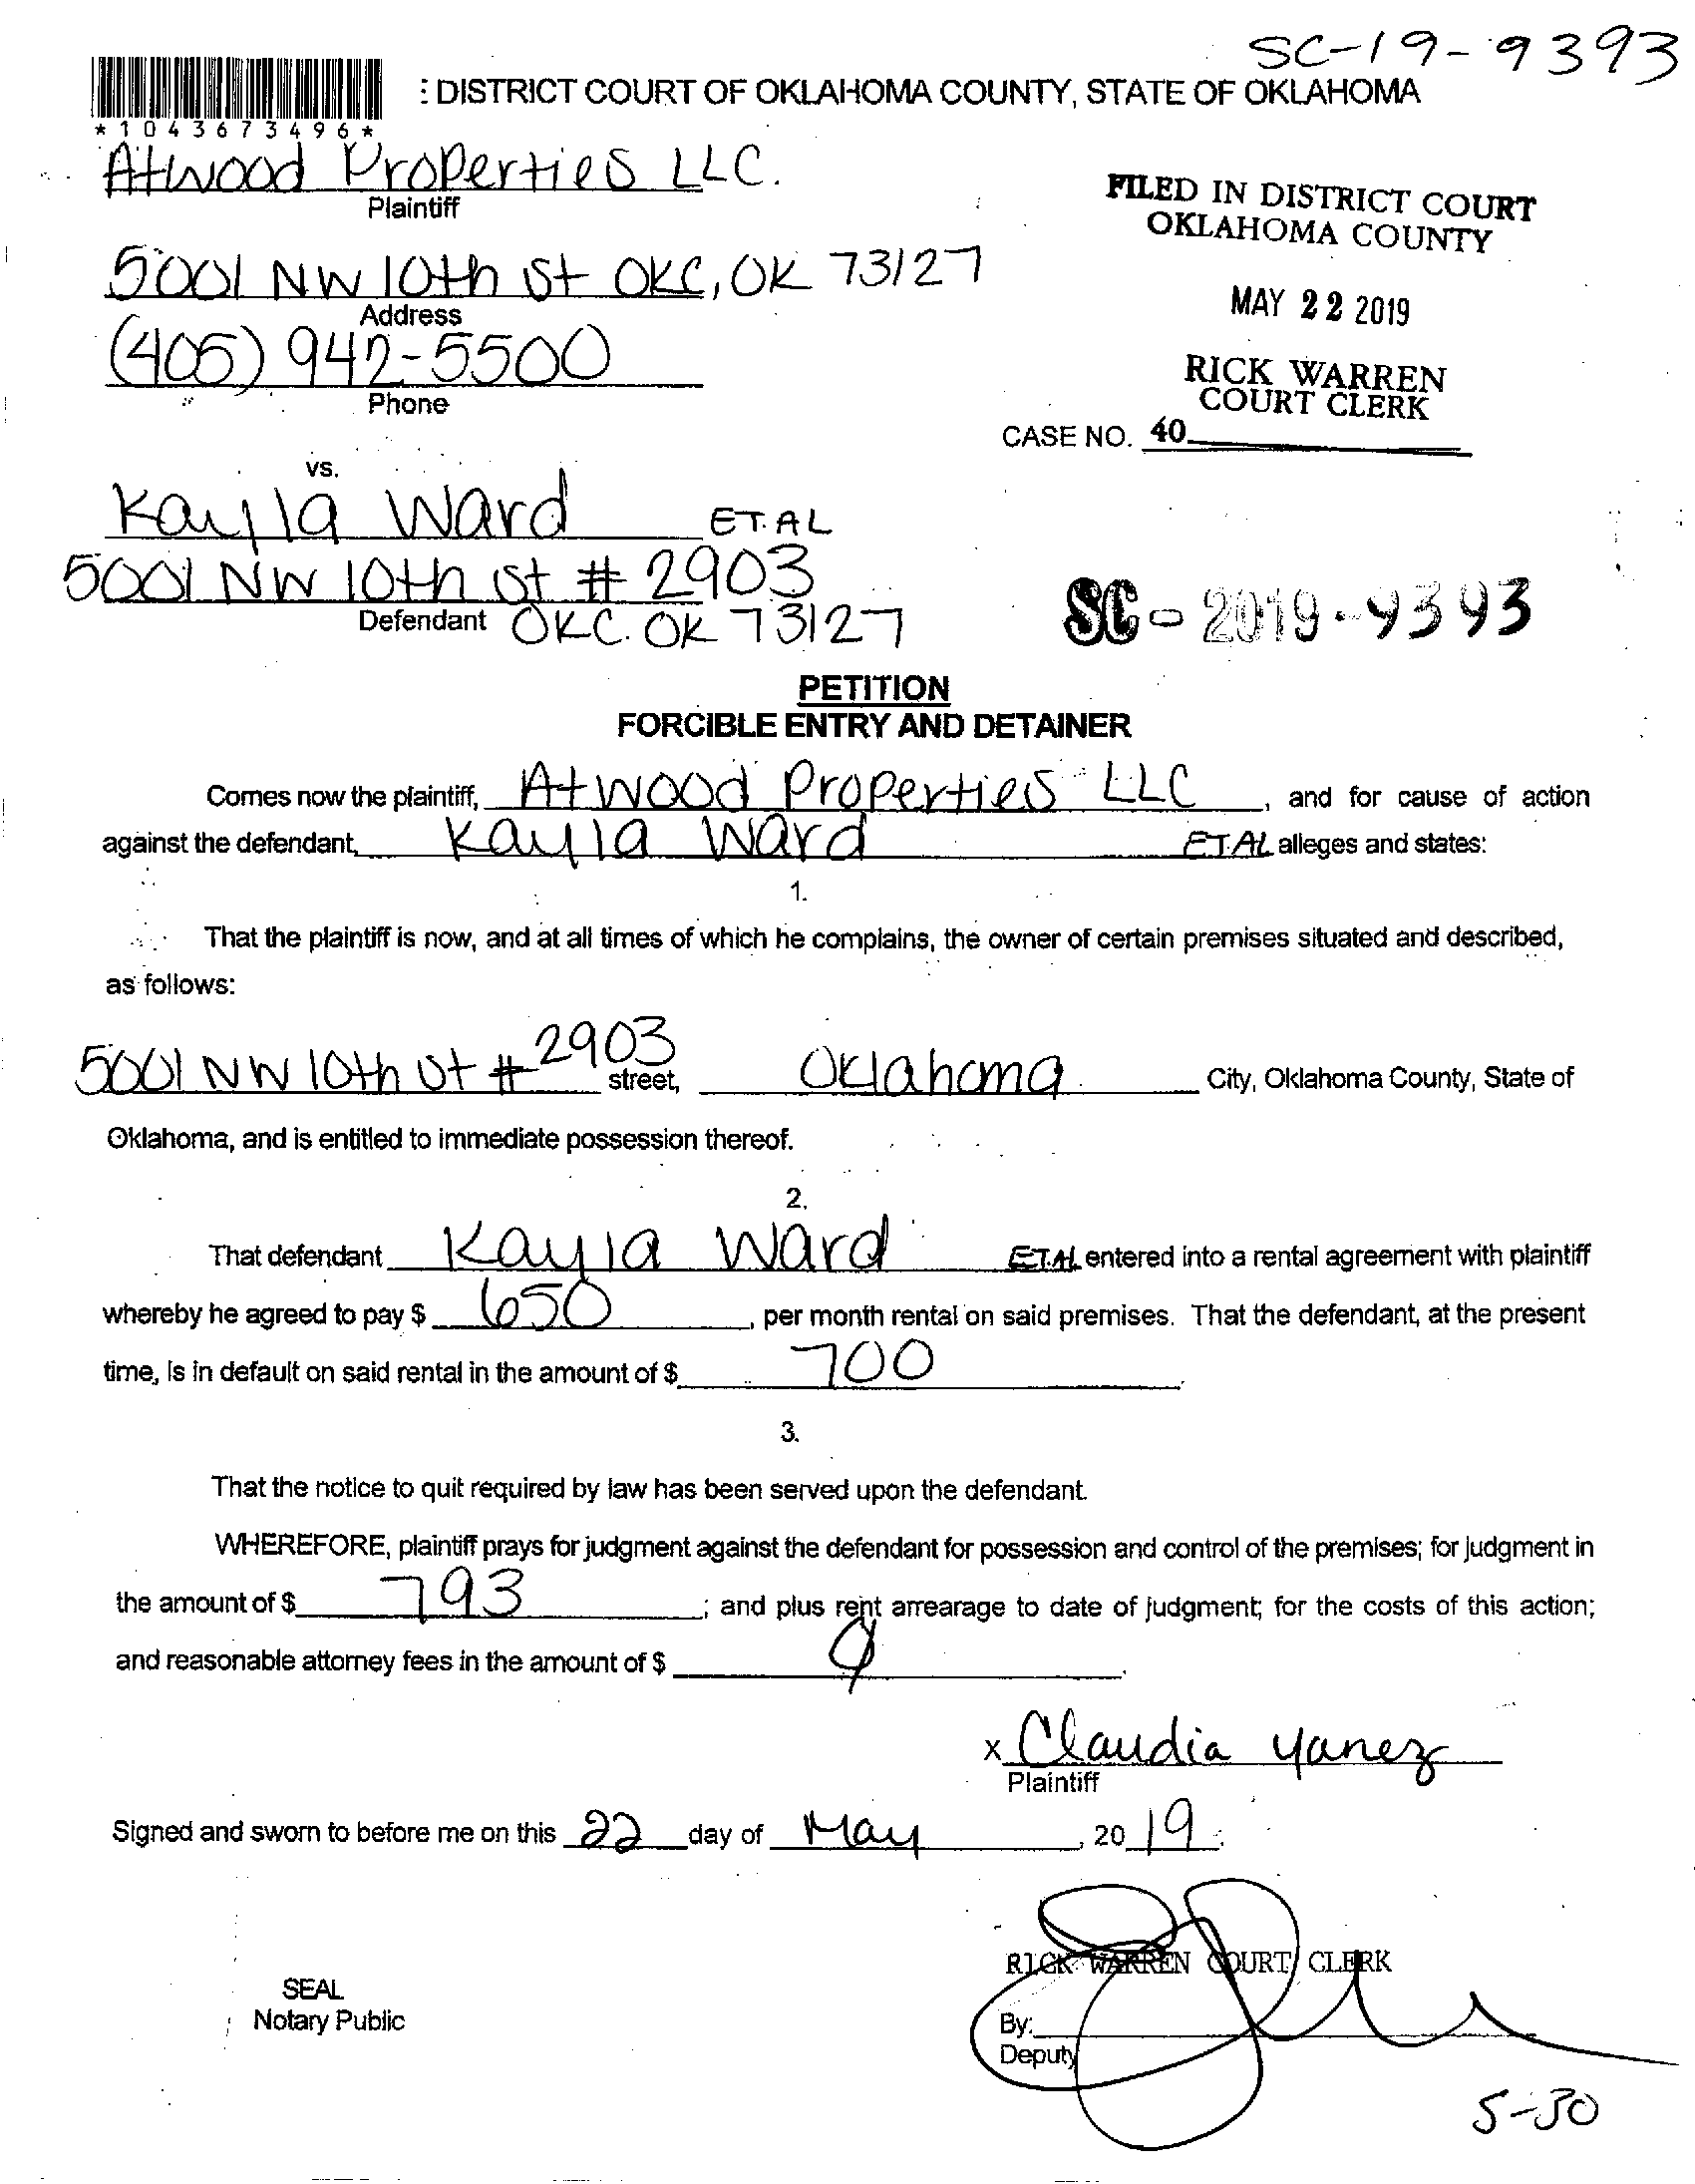 SC-19-9393
: DISTRICT COURT OF OKLAHOMA COUNTY, STATE OF OKLAHOMA
*1043673496*
Atwood Properties LLC.
Plaintiff
FILED IN DISTRICT COURT
OKLAHOMA COUNTY
5001 NW 10th St OKC, OK 73127
Address
MAY 22 2019
(405) 942-5500
Phone
RICK WARREN
COURT CLERK
CASE NO. 40
vs.
Kayla Ward ET.AL
5001 NW 10th St # 2903
Defendant OKC. OK 73127
SC-2019-9393
PETITION
FORCIBLE ENTRY AND DETAINER
Comes now the plaintiff, Atwood Properties LLC, and for cause of action
against the defendant, Kayla Ward ET.AL alleges and states:
1.
That the plaintiff is now, and at all times of which he complains, the owner of certain premises situated and described,
as follows:
5001 NW 10th St # 2903 street, Oklahoma City, Oklahoma County, State of
Oklahoma, and is entitled to immediate possession thereof.
2.
That defendant Kayla Ward ET.AL entered into a rental agreement with plaintiff
whereby he agreed to pay $ 650, per month rental on said premises. That the defendant, at the present
time, is in default on said rental in the amount of $ 700.
3.
That the notice to quit required by law has been served upon the defendant.
WHEREFORE, plaintiff prays for judgment against the defendant for possession and control of the premises; for judgment in
the amount of $ 793; and plus rent arrearage to date of judgment; for the costs of this action;
and reasonable attorney fees in the amount of $ 0.
x Claudia Yanez
Plaintiff
Signed and sworn to before me on this 22 day of May, 2019.
RICK WARREN COURT CLERK
SEAL
Notary Public
By:
Deputy
5-30